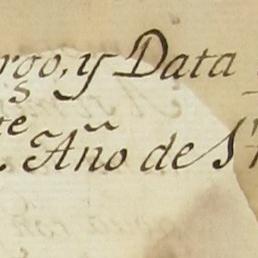 rgo, y Data
te Año de